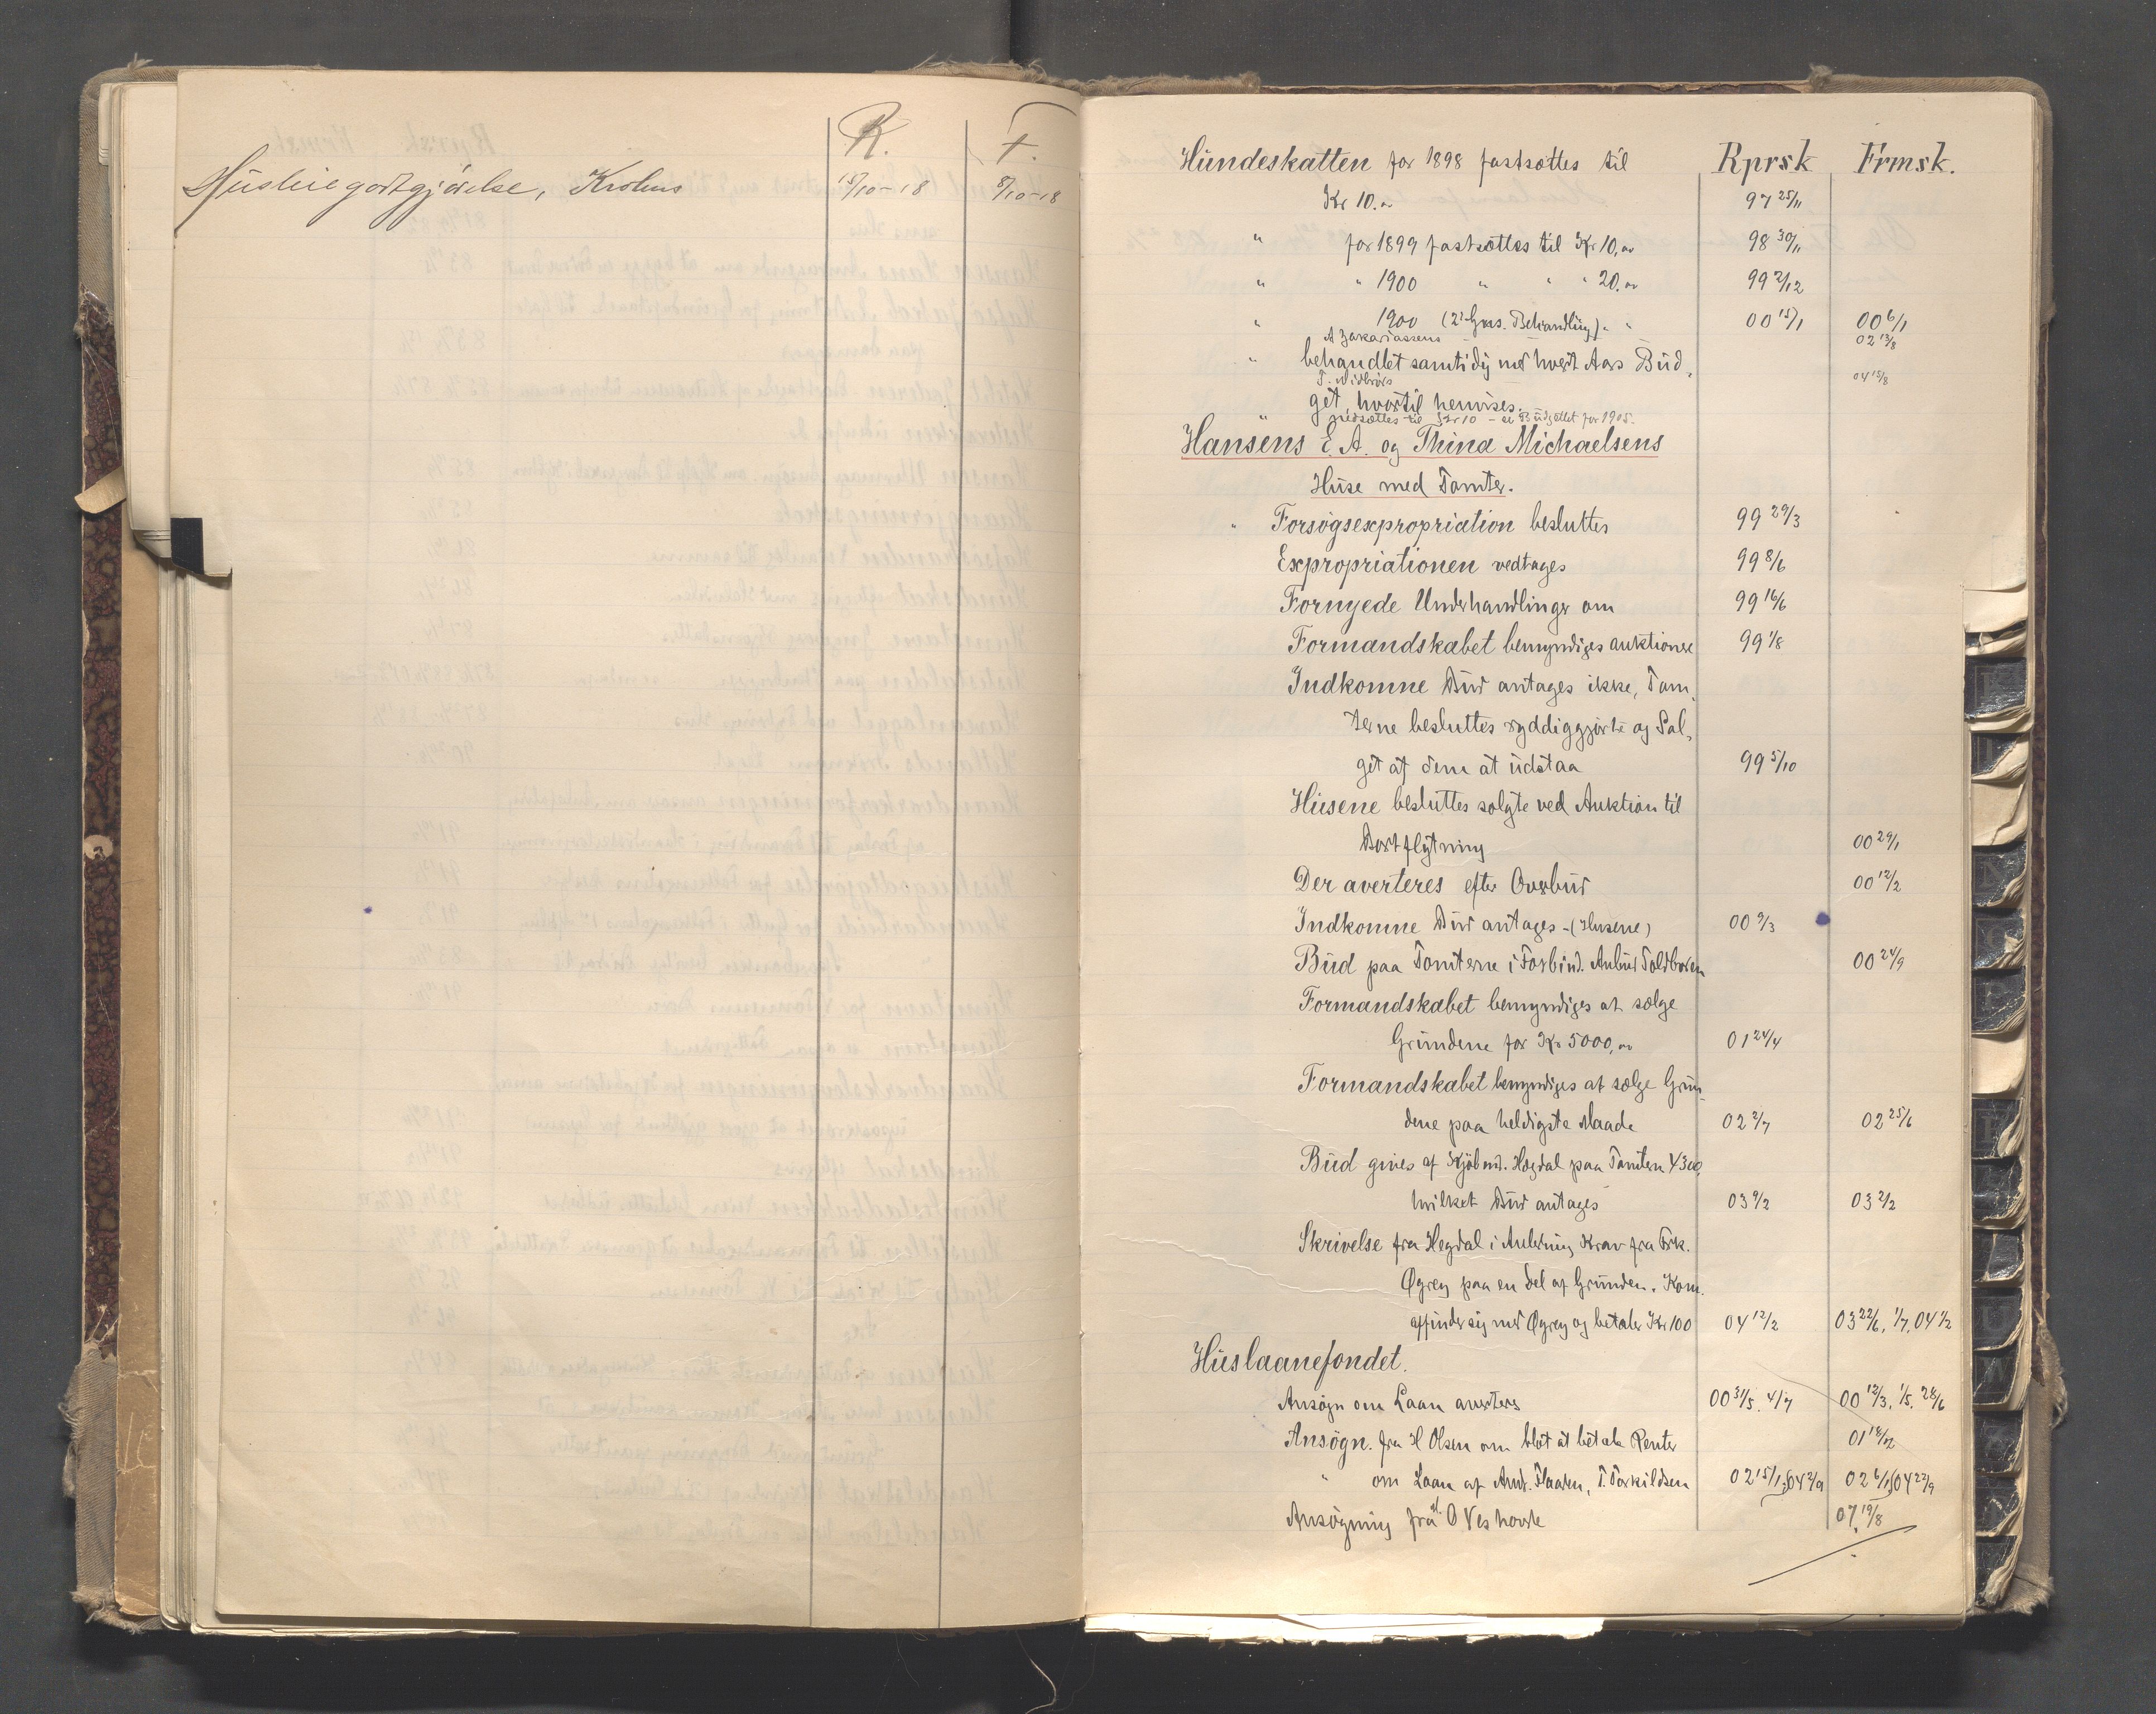 R. F.
Husleiegodtgjörelse, 15/10-18 8/10-18
Hundeskatten for 1898 fastsættes til Rprsk Frmsk.
Kr 10.00 97 25/11
" for 1899 fastsættes til Kr 10,00 98 30/11
" " 1900 " " " 20.00 99 21/12
" 1900 (2' Gns. Behandling) " " 00 15/1 00 6/1
A Zakariassens 02 13/8
" behandlet samtidig med hvert Aars Bud-
T. 04 15/8
get, hvortil henvises.
" nedsættes til Kr 10 - se Budgettet for 1905.
Hansens E. A. og Thina Michaelsens
Huse med Tomter.
" Forsøgsexpropriation besluttes 99 29/3
Expropriationen vedtages 99 8/6
Fornyede Underhandlinger om 99 16/6
Formandskabet bemyndiges auktionere 99 1/8
Indkomne Bud antages ikke, Tom-
terne besluttes ryddiggjorte og Sal-
get af dem at udstaa 99 5/10
Husene besluttes solgte ved Auktion til
Bortflytning 00 29/1
Der averteres efter Overbud 00 12/2
Indkomne Bud antages - (Husene) 00 9/3
Bud paa Tomterne i Forbind. Anbud Toldboden 00 24/9
Formandskabet bemyndiges at sælge
Grundene for Kr 5000,00 01 24/4
Formandskabet bemyndiges at sælge Grun-
dene paa heldigste Maade 02 2/7 02 25/6
Bud gives af Kjøbmd. Hegdal paa Tomten 4300,
hvilket Bud antages 03 9/2 03 2/2
Skrivelse fra Hegdal i Anledning Krav fra Frk.
Øgrey paa en del af Grunden. Kom.
affinder sig med Øgrey og betaler Kr 100 04 12/2 03 22/6, 1/7, 04 1/2
Huslaanefondet.
Ansøgn om Laan averteres 00 31/5. 4/7 00 12/3, 1/5, 28/6
Ansøgn. fra H Olsen om blot at betale Renter 01 18/12
" om Laan af Andr. Flaaten, T. Torkildsen 02 15/1, 04 2/9 02 6/1, 04 22/9
Ansøgning fra O Veshovde 07 19/8